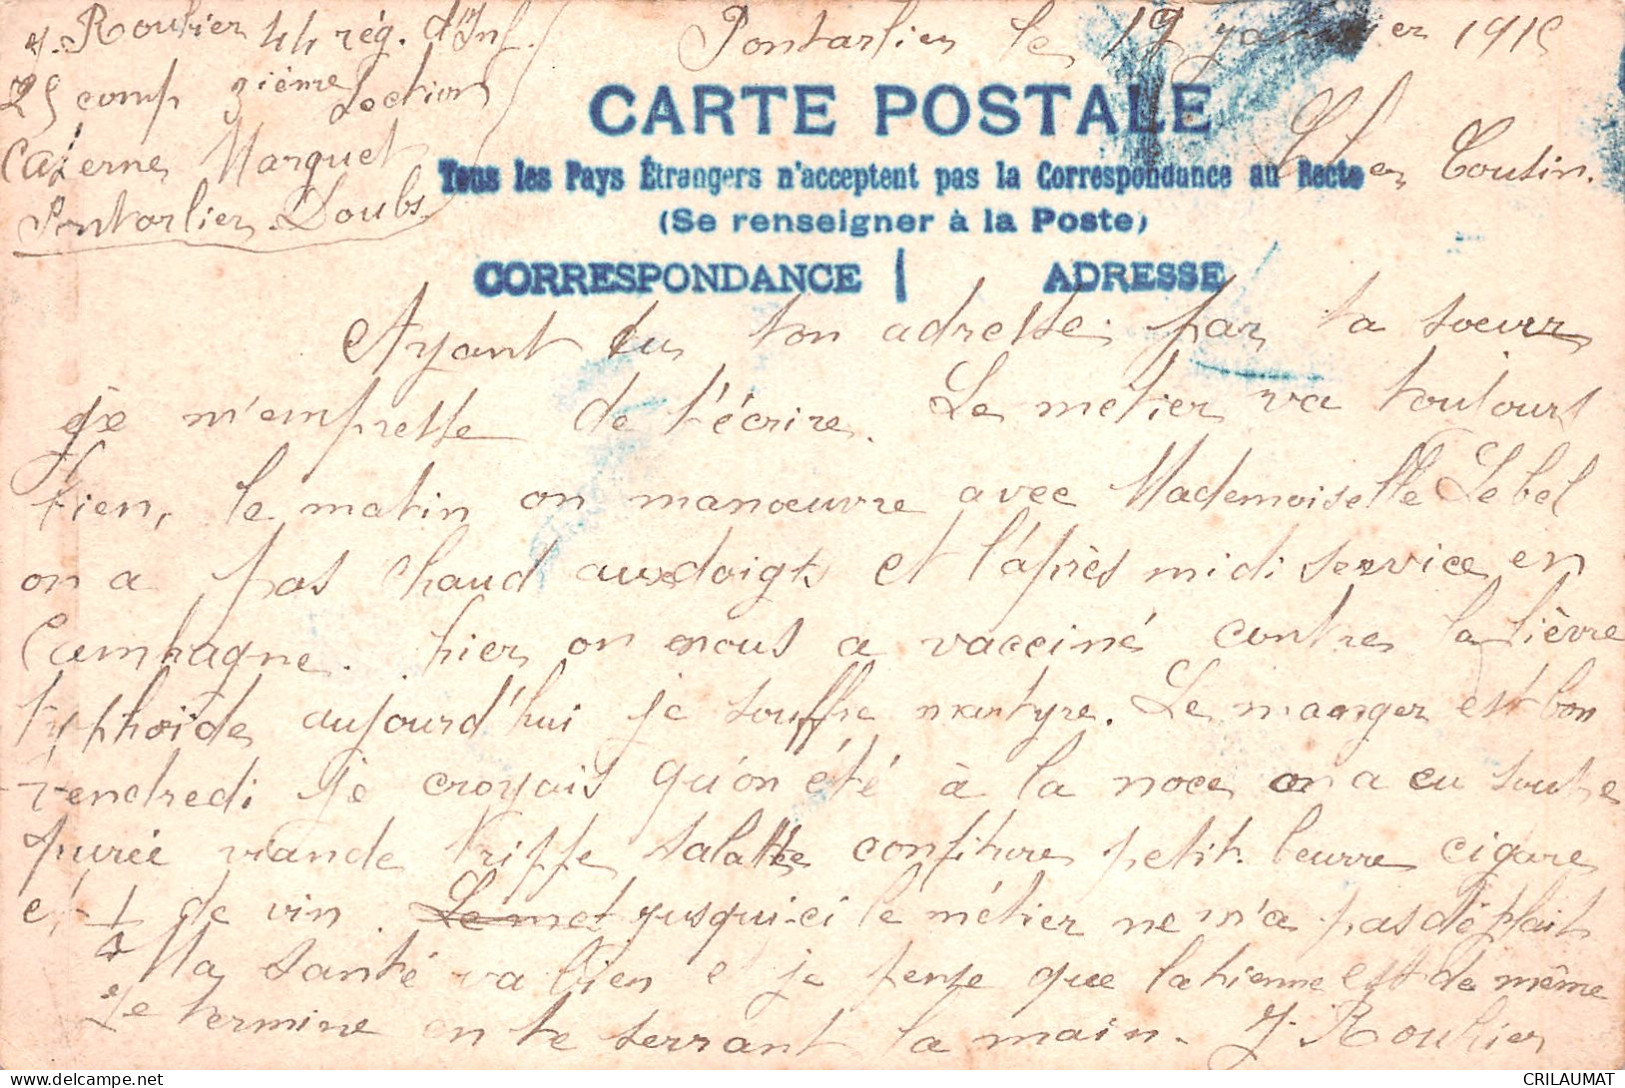 J. Rouhier 44 rég. d'Inf.
25 comp 3ième Section
Caserne Marguet
Pontarlier. Doubs.
Pontarlier le 17 janvier 1915
CARTE POSTALE
Tous les Pays Étrangers n'acceptent pas la Correspondance au Recto
(Se renseigner à la Poste)
CORRESPONDANCE ADRESSE
Cher Cousin.
Ayant eu ton adresse par ta soeur
je m'empresse de t'écrire. Le métier va toujours
bien, le matin on manoeuvre avec Mademoiselle Lebel
on a pas chaud aux doigts et l'après midi service en
Campagne. hier on nous a vacciné contre la fièvre
typhoïde aujourd'hui je souffre martyre. Le manger est bon
vendredi je croyais qu'on été à la noce on a eu soupe
purée viande trippe salatte confiture petit beurre cigare
et 1/4 de vin. Le met jusqui-ci le métier ne m'a pas déplait
Ma santé va bien et je pense que la tienne est de même
Je termine en te serrant la main. J. Rouhier
CRILAUMAT